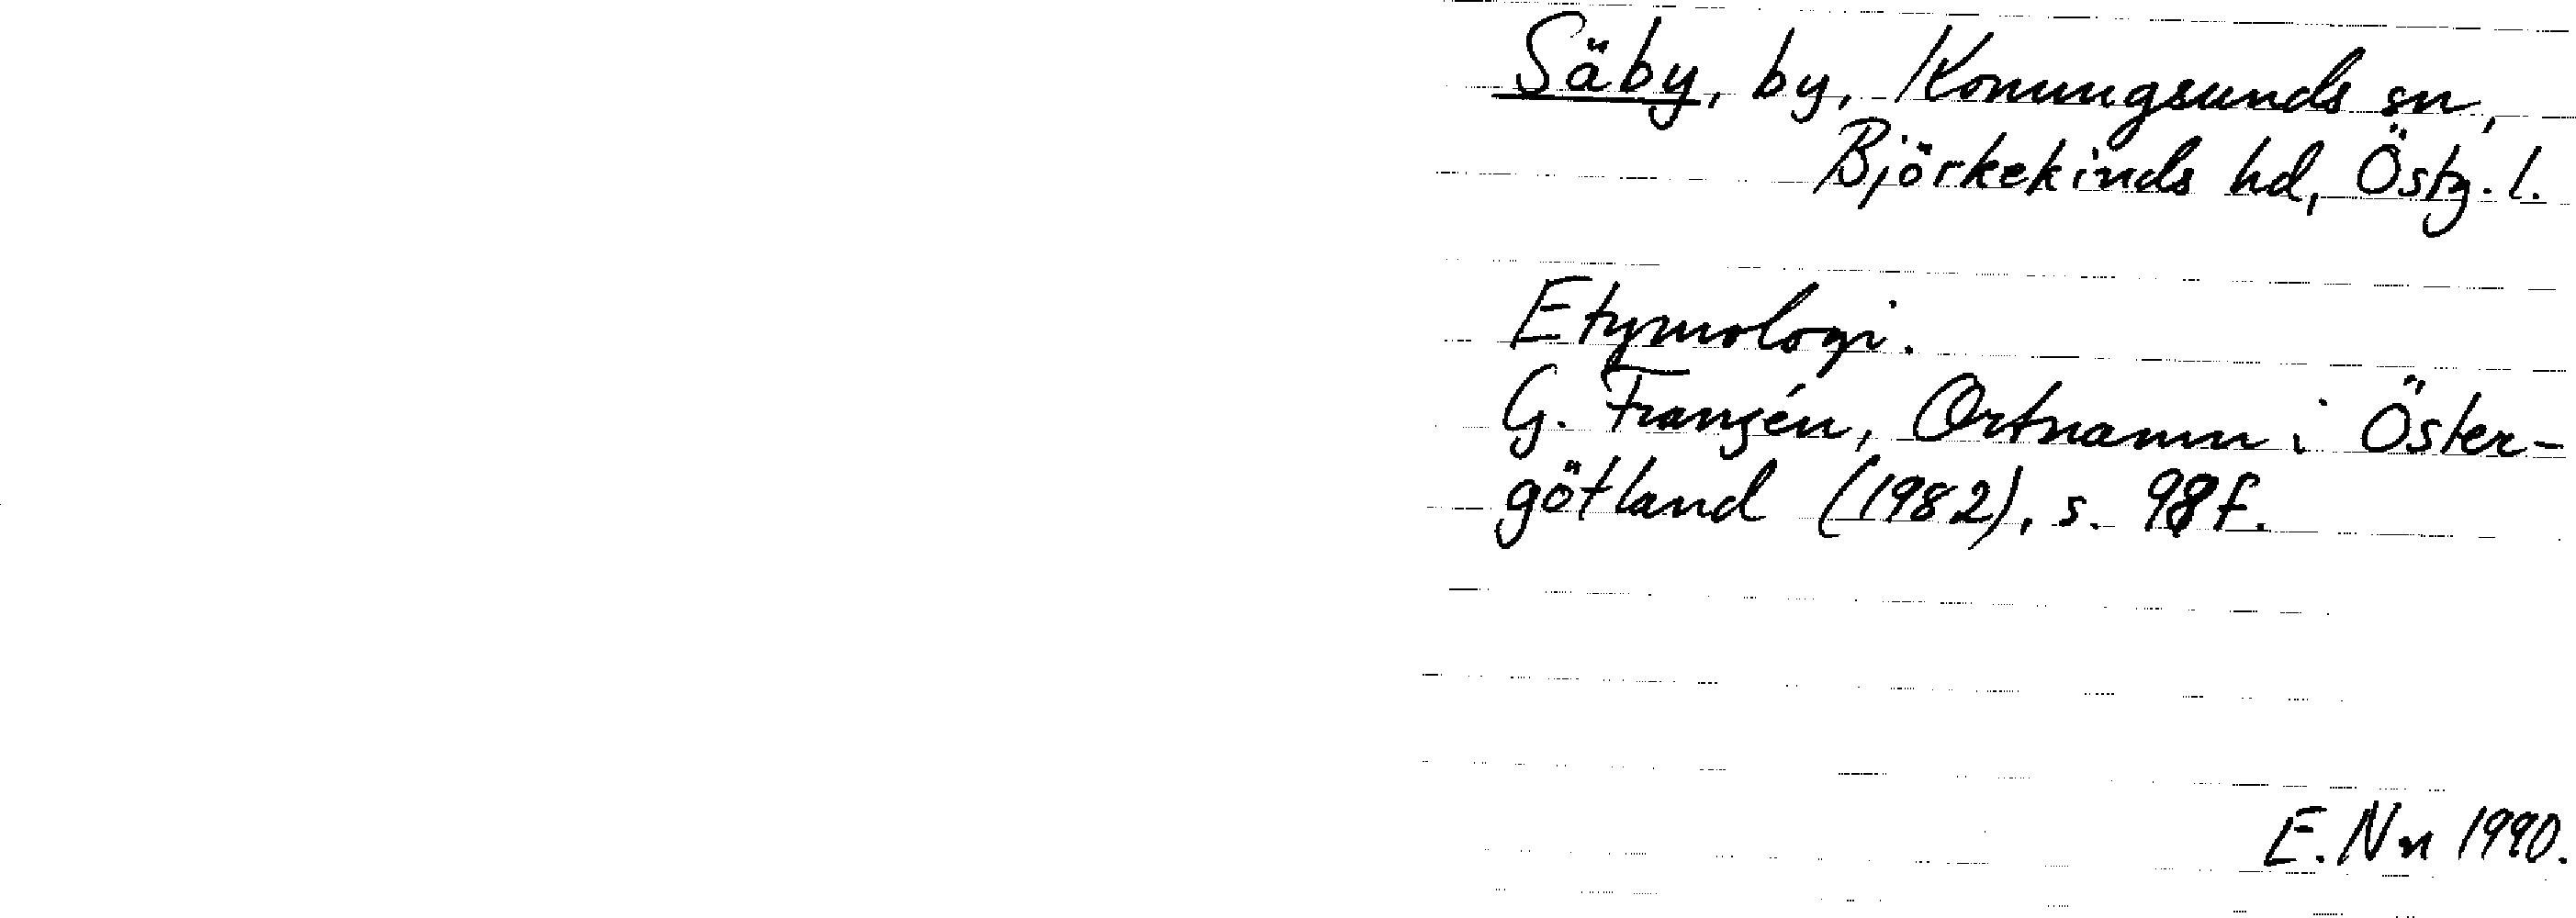 Säby, by, Konungsunds sn,
Björkekinds hd, Östg. l.
Etymologi.
G. Franzén, Ortnamn i Öster-
götland (1982), s. 98 f.
E. Nn 1990.